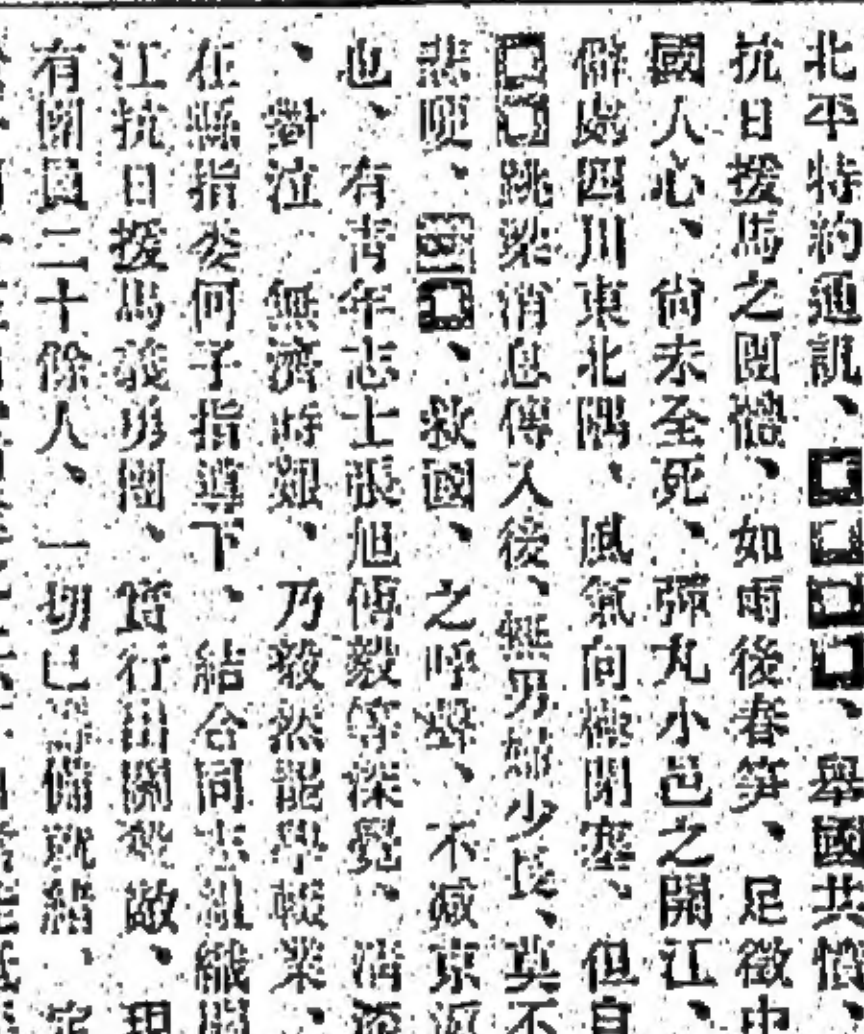 北平特約通訊、□□□□、舉國共憤、
抗日援馬之團體、如雨後春笋、足徵中
國人心、尚未至死、彈丸小邑之開江、
僻處四川東北隅、風氣向極閉塞、但自
□□跳梁消息傳入後、無男婦少長、莫不
悲哽、□□、救國、之呼聲、不減京滬
也、有青年志士張旭傅毅等深覺、清淚
、對泣　無濟時艱、乃毅然罷學輟業、
在縣指委何子指導下、結合同志組織開
江抗日援馬義勇團、實行出關殺敵、現
有團員二十餘人、一切已籌備就緒、定